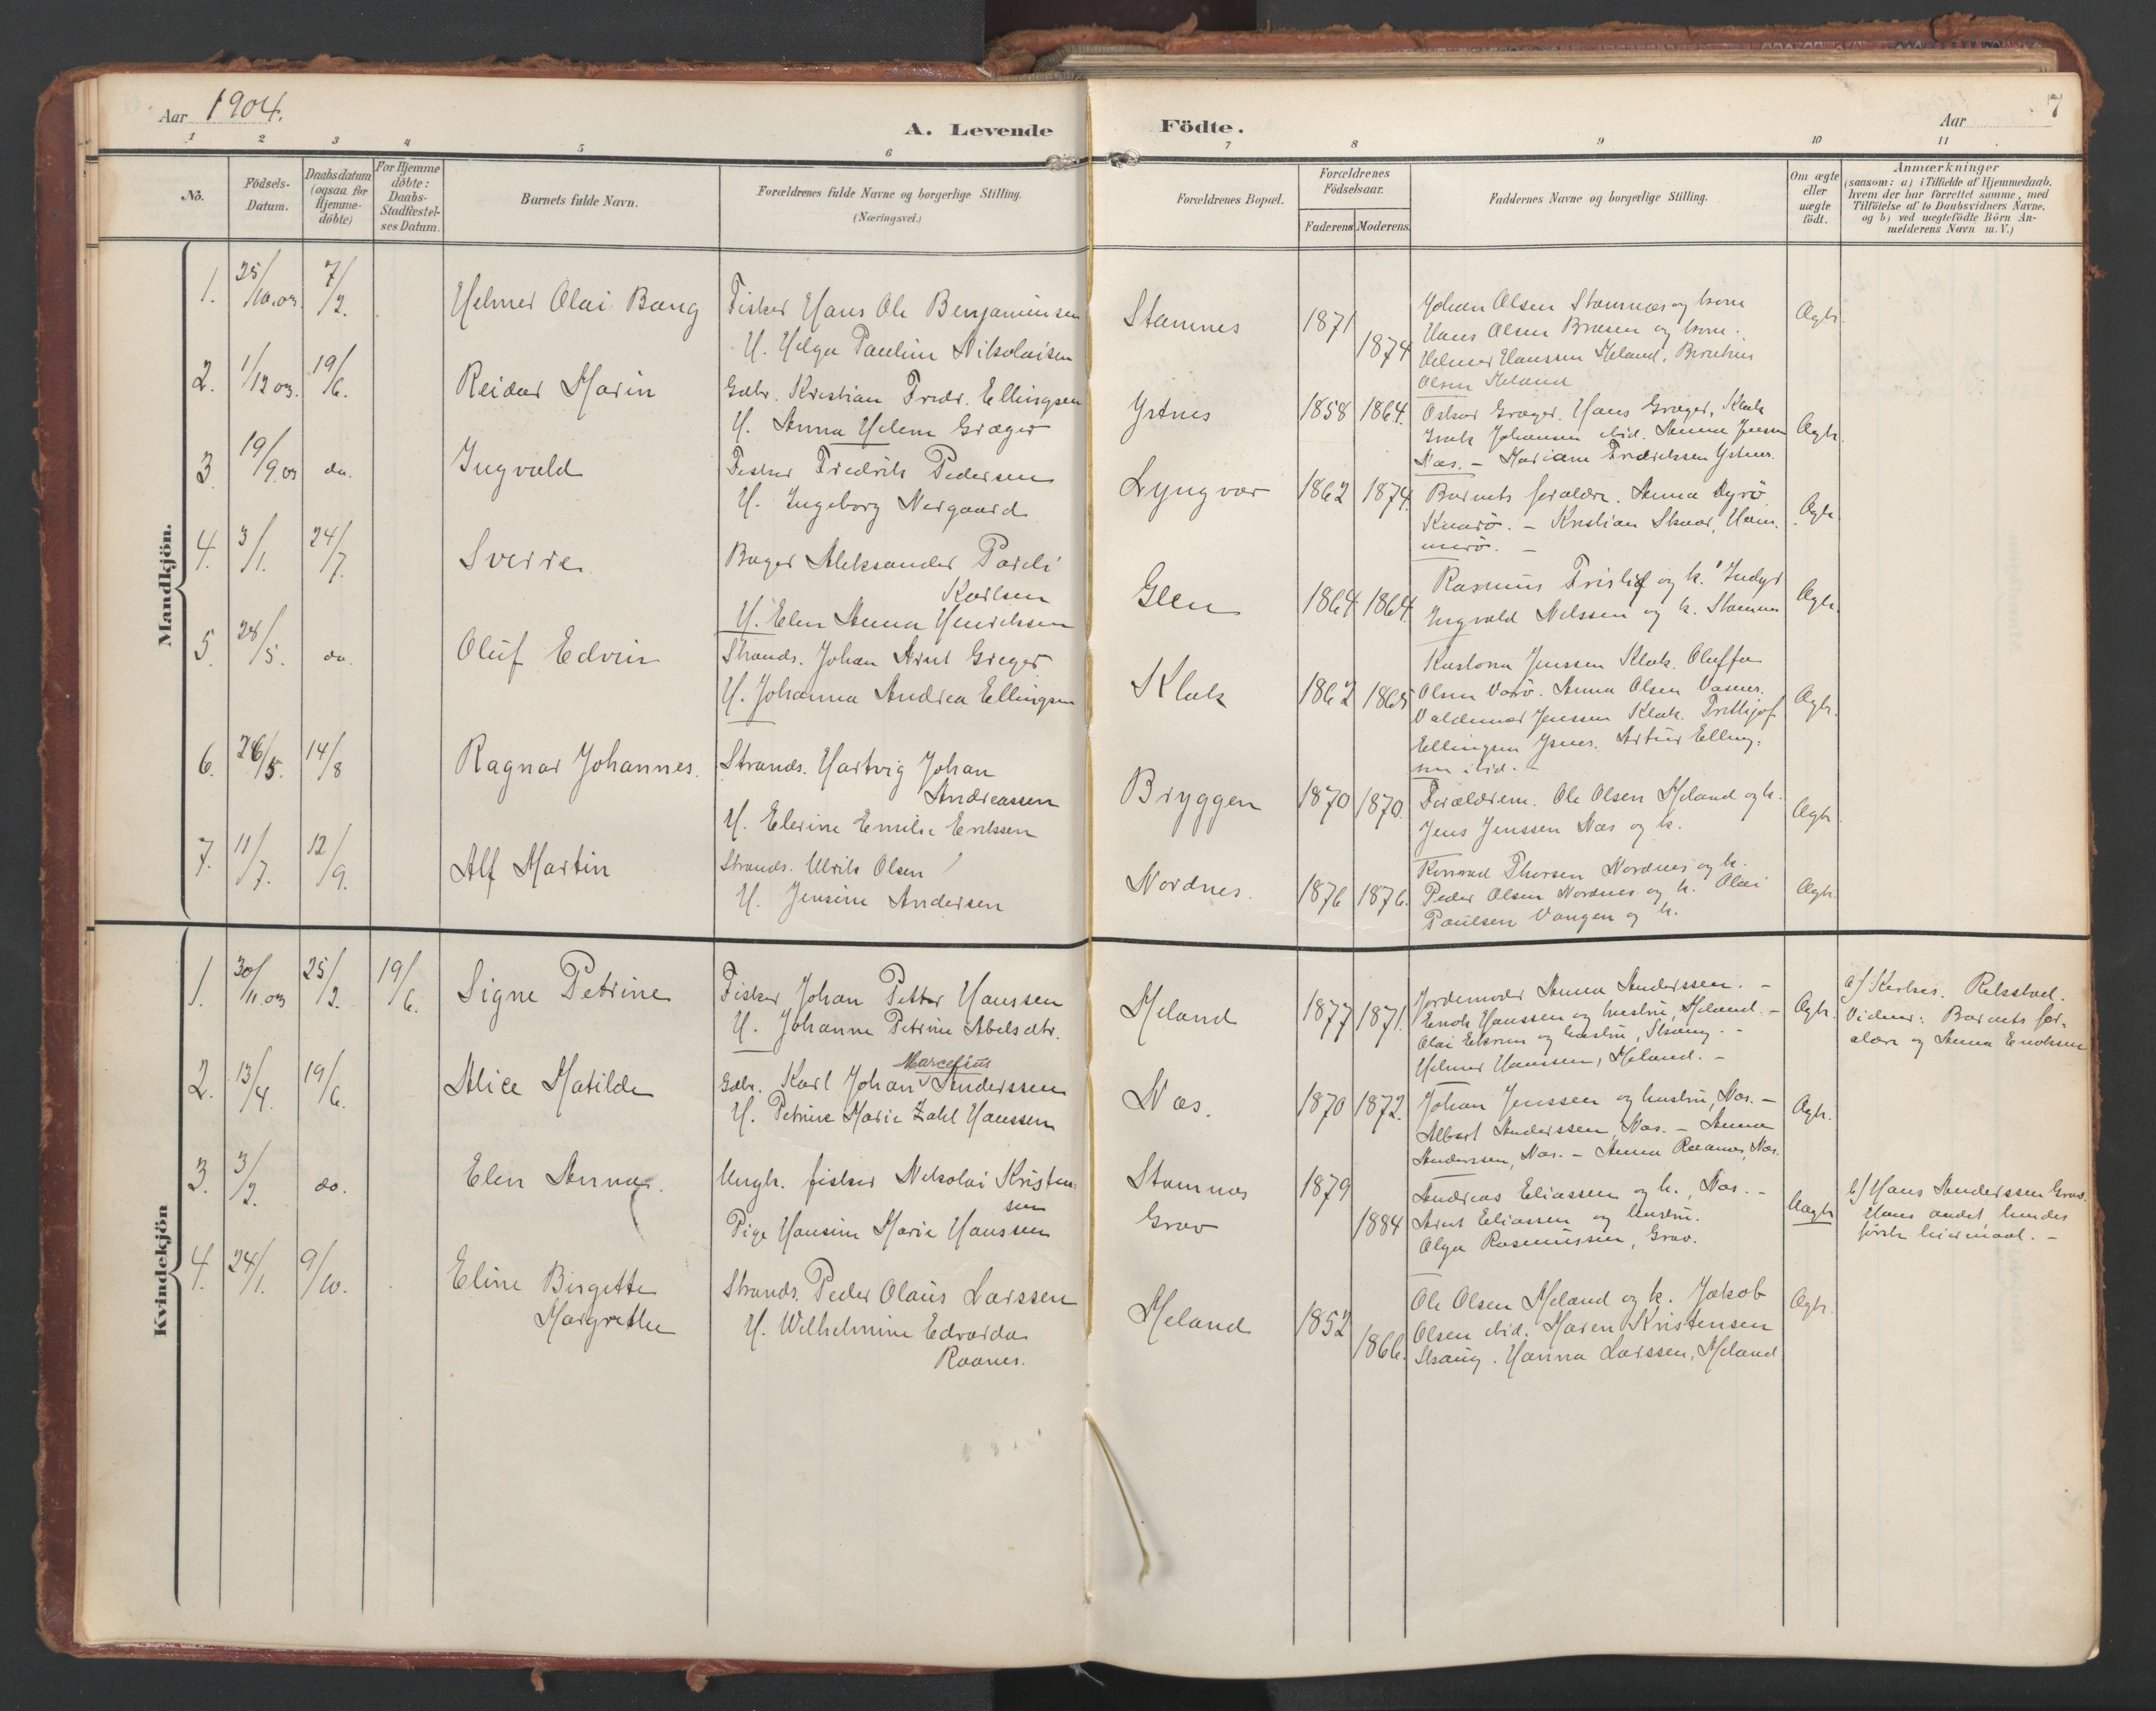 Aar 1904.
A. Levende Födte.
Aar
7
1 2 3 4 5 6 7 8 9 10 11
No.
Födsels-Datum.
Daabsdatum (ogsaa for Hjemme-döbte)
For Hjemme döbte: Daabs-Stadfæstel-ses Datum.
Barnets fulde Navn.
Forældrenes fulde Navne og borgerlige Stilling. (Næringsvei.)
Forældrenes Bopæl.
Forældrenes Födselsaar.
Faderens Moderens
Faddernes Navne og borgerlige Stilling.
Om ægte eller uægte födt.
Anmærkninger
(saasom: a) i Tilfælde af Hjemmedaab.
hvem der har forrettet samme, med
Tilföielse af to Daabsvidners Navne,
og b) ved uægtefödte Börn An-
melderens Navn m. V.)
Mandkjön.
1. 25/10.03 7/2. Helmer Olai Bang
Fisker Hans Ole Benjaminsen
H. Helga Pauline Nikolaisen
Stamnes 1871 1874
Johan Olsen Stamnes og kone
Hans Olsen Brasen og kone.
Helmer Hanssen Meland,
Olsen Meland
Ægte.
2. 1/12 03. 19/6. Reidar Marin
Gdbr. Kristian Fredr. Ellingsen
H. Anna Helene Græger
Ystnes 1858 1864.
Oskar Græger. Hans Græger, Klæk
Johansen ibid. Anna Jensen
Næs. - Mariane Fredriksen Ystnes.
Ægte.
3. 19/9.03 do. Ingvald
Fisker Fredrik Pedersen
H. Ingeborg Nergaard
Lyngvær 1862 1874.
Barnets forældre. Anna Dyrö
Knarö. - Kristian Skaar, Ham-
merö. -
Ægte
4. 3/1. 24/7. Sverre.
Bager Aleksander Pareli
Karlsen
H. Elen Anna Henriksen
Glen 1864 1864.
Rasmus og k. Indyr
Ingvald Nilssen og k. Stamnes
Ægte.
5. 28/5. do. Oluf Edvin
Strands. Johan Arnt Græger
H. Johanna Andrea Ellingsen
Klæk 1862 1865
Jenssen Klæk. Oluffa
Olsen Værö. Anna Olsen Vasnes.
Valdemar Jenssen Klæk. Frithjof
Ellingsen Ysnes. Artur Elling-
sen ibid. -
Ægte.
6. 26/5. 14/8 Ragnar Johannes.
Strands. Hartvig Johan
Andreassen
H. Elerine Emilie Eriksen
Bryggen 1870 1870.
Forældrene. Ole Olsen Meland og k.
Jens Jenssen Næs og k.
Ægte
7. 11/7. 12/9. Alf Martin
Strands. Ulrik Olsen
H. Jensine Andersen
Nordnes. 1876 1876.
Konrad Thorsen Nordnes og k.
Peder Olsen Nordnes og k. Olai
Paulsen Vangen og k.
Ægte.
Kvindekjön
1. 30/11.03 25/2. 19/6. Signe Petrine
Fisker Johan Petter Hanssen
H. Johanne Petrine Abelsdtr.
Meland 1877 1871.
Jordemoder Anna Anderssen. -
Enok Hanssen og hustru, Meland. -
Olai Eksrem og hustru, Skaug. -
Helmer Hanssen, Meland. -
Ægte.
a/ Kirkes. Rekstad.
Vidner: Barnets for-
ældre og Anna Enoksen
2. 13/4. 19/6. Alice Matilde
Marcelius
Gdbr. Karl Johan Anderssen
H. Petrine Marie Zahl Hanssen
Næs. 1870 1872.
Johan Jenssen og hustru, Næs. -
Albert Anderssen, Næs. - Anna
Anderssen, Næs. - Anna Raanes, Næs.
Ægte.
3. 3/2. do. Elen Anna.
Ungk. fisker Nikolai Kristen-
sen
Pige Hansine Marie Hanssen
Stamnes
Grav
1879 1884
Andreas Eliassen og h., Næs. -
Arnt Eliassen og hustru.
Olga Rasmussen, Grav.
Uægte
b/ Hans Anderssen Grav.
Hans andet hendes
förste leiermaal. -
4. 24/1. 9/10. Eline Birgitte
Margrethe
Strands. Peder Olaus Larssen
H. Wilhelmine Edvarda
Raanes.
Meland 1852 1866.
Ole Olsen Meland og k. Jakob
Olsen ibid. Maren Kristensen
Skaug. Hanna Larssen, Meland
Ægte.